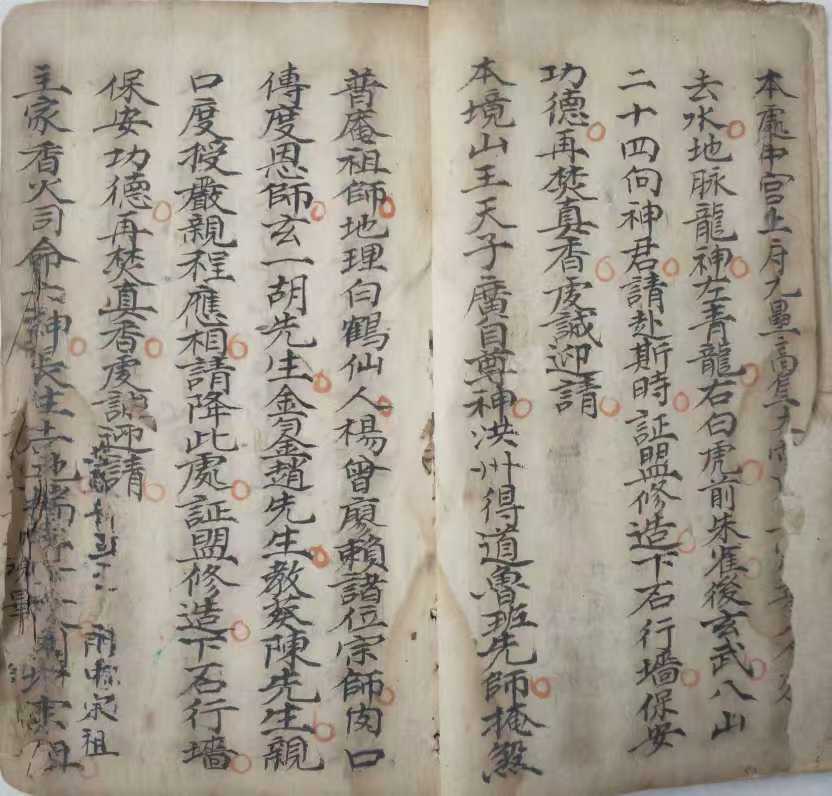 本處中宮土府九壘高皇大
去水地脉龍神左青龍右白虎前朱雀後玄武八山
二十四向神君請赴斯時証盟修造下石行墻保安
功德再焚真香虔誠迎請
本境山王天子廣自尊神洪州得道魯班先師掩煞
普庵祖師地理白鶴仙人楊曾廖賴諸位宗師肉口
傳度恩師玄一胡先生金趙先生教葵陳先生親
口度授嚴親程應相請降此處証盟修造下石行墻
保安功德再焚真香虔誠迎請
宗祖
主家香火司命六神長生吉